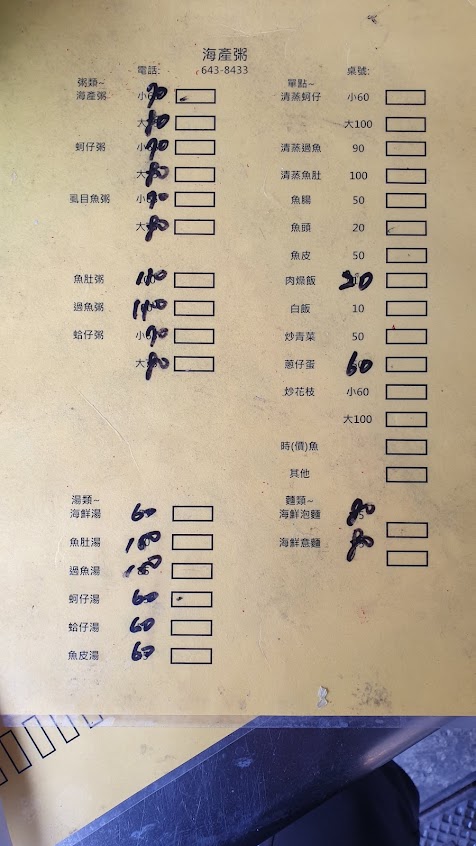 海產粥
電話: 643-8433 桌號:
粥類~
海產粥 小 70
大 80
蚵仔粥 小 70
大 80
虱目魚粥 小 70
大 80
魚肚粥 140
過魚粥 140
蛤仔粥 小 70
大 80
湯類~
海鮮湯 60
魚肚湯
過魚湯
蚵仔湯 60
蛤仔湯 60
魚皮湯 60
單點~
清蒸蚵仔 小60
大100
清蒸過魚 90
清蒸魚肚 100
魚腸 50
魚頭 20
魚皮 50
肉燥飯 20
白飯 10
炒青菜 50
蔥仔蛋 60
炒花枝 小60
大100
時(價)魚
其他
麵類~
海鮮泡麵 80
海鮮意麵 80